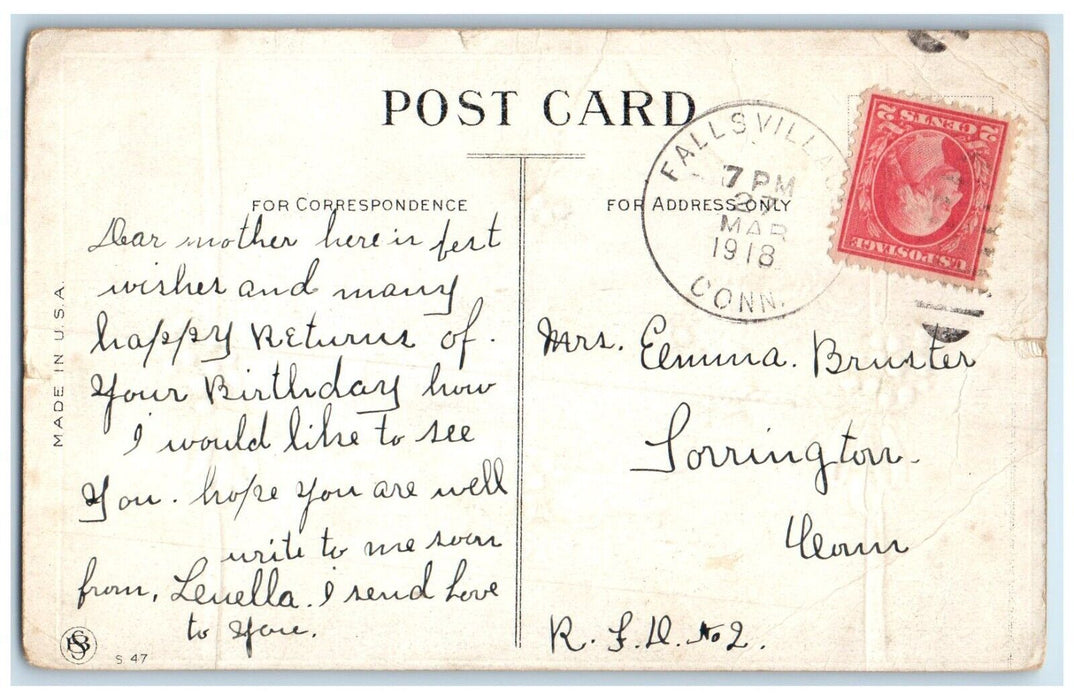 POST CARD
FOR CORRESPONDENCE
FOR ADDRESS ONLY
FALLSVILLAGE
7 PM
27
MAR
1918
CONN.
2 CENTS 2
U.S. POSTAGE
Dear mother here is best
wishes and many
happy Returns of.
Your Birthday how
I would like to see
You. hope you are well
write to me soon
from, Leuella. I send Love
to you.
Mrs. Emma. Bruster
Torrington.
Conn
R. F. D. No 2.
MADE IN U.S.A.
S 47